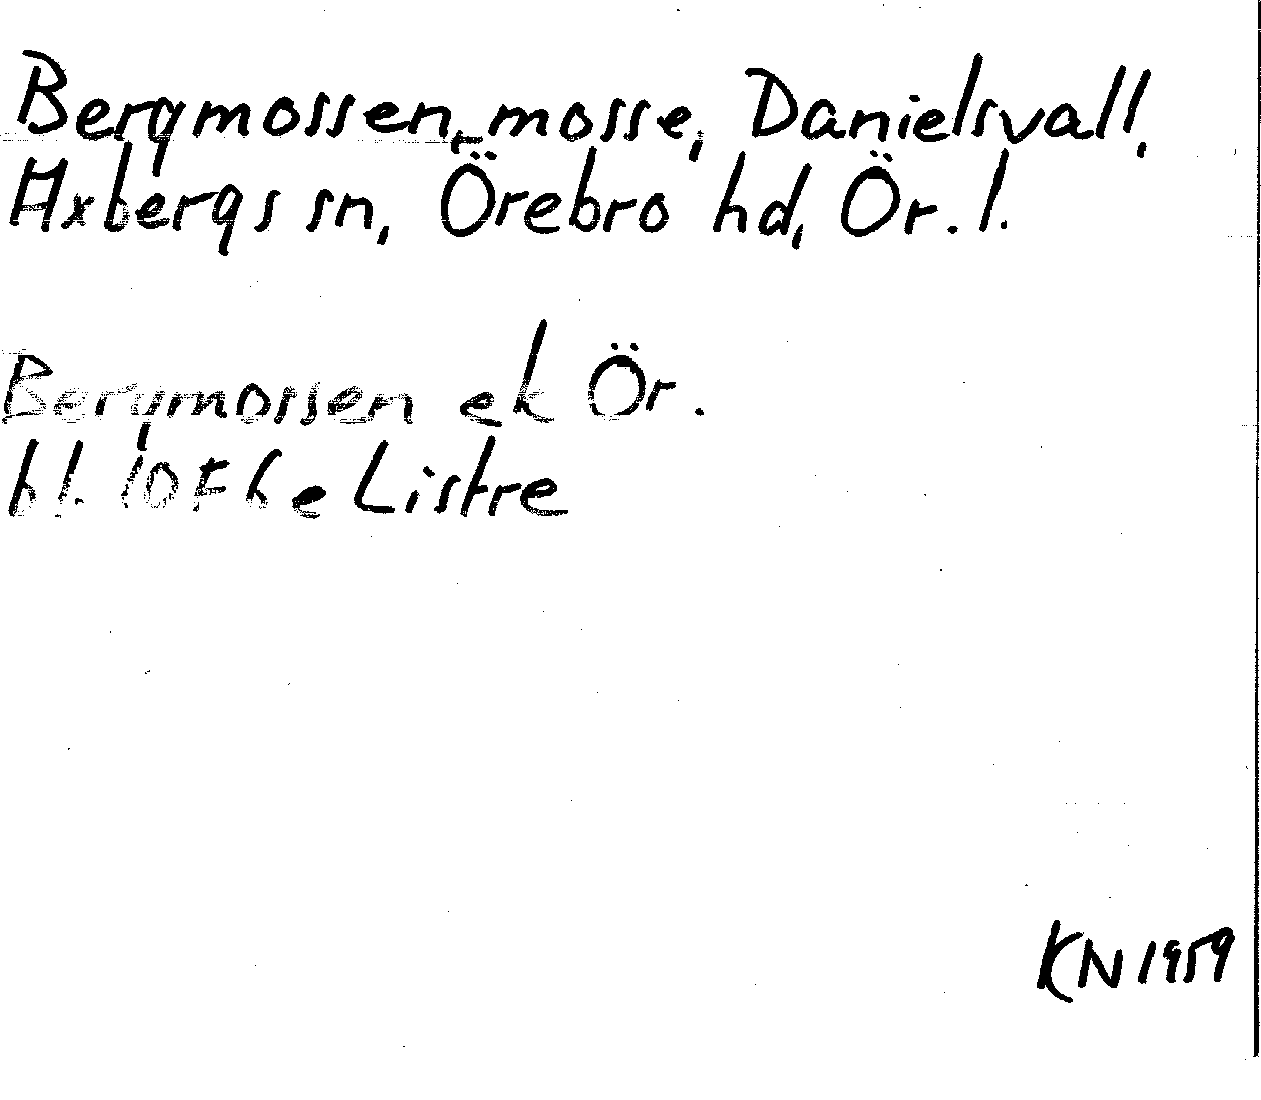 Bergmossen, mosse, Danielsvall,
Axbergs sn, Örebro hd, Ör. l.
Bergmossen ek Ör.
bl. 10F6e Listre
KN 1959